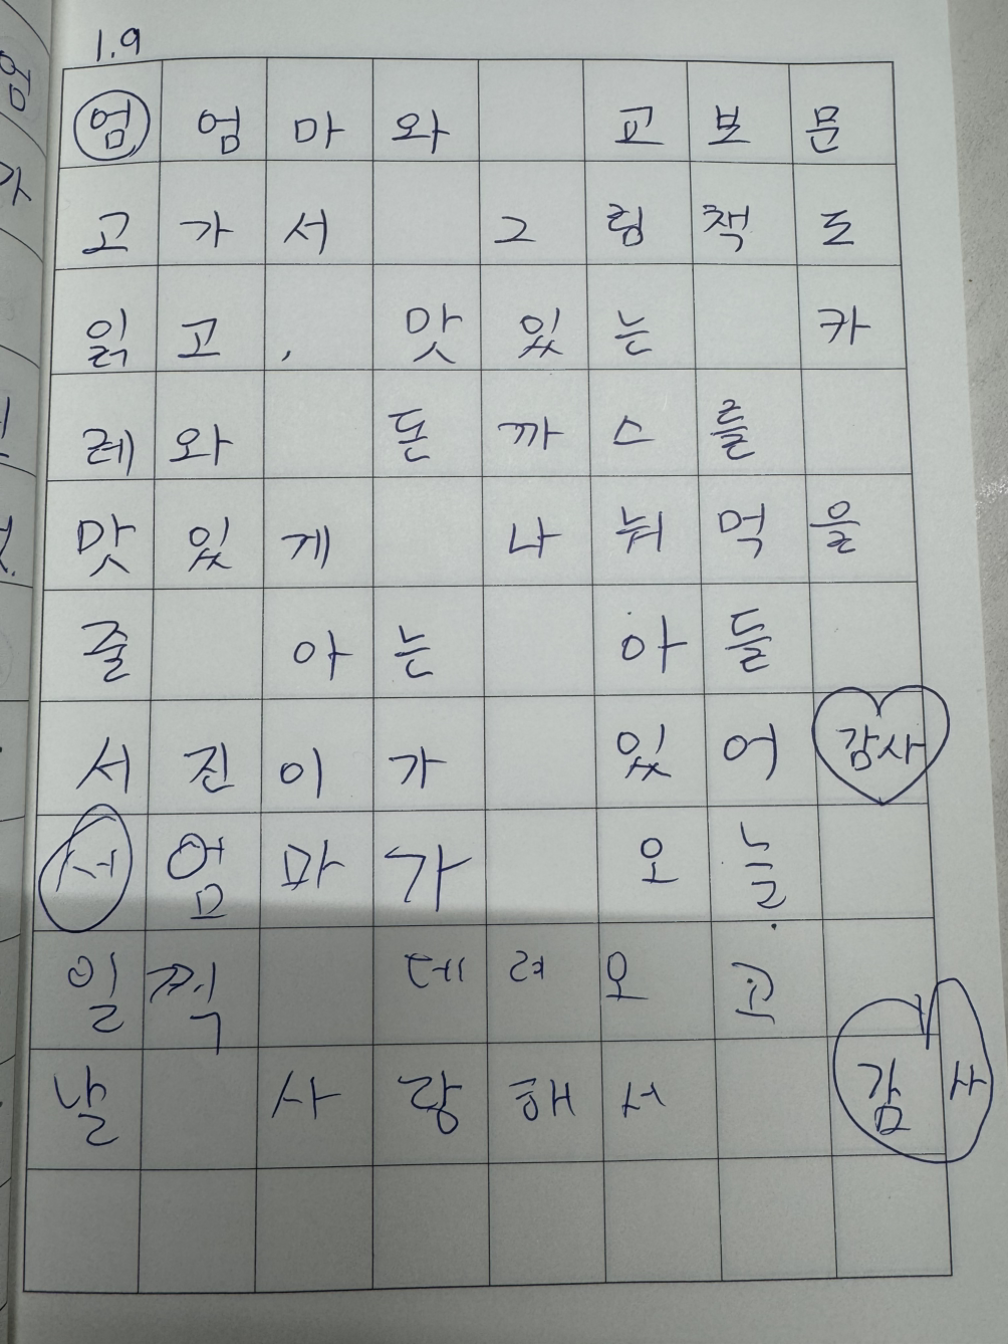 1.9
엄 엄마와 교보문
고가서 그림책도
읽고, 맛있는 카
레와 돈까스를
맛있게 나눠먹을
줄 아는 아들
서진이가 있어 감사
서 엄마가 오늘
일찍 데려오고
날 사랑해서 감사